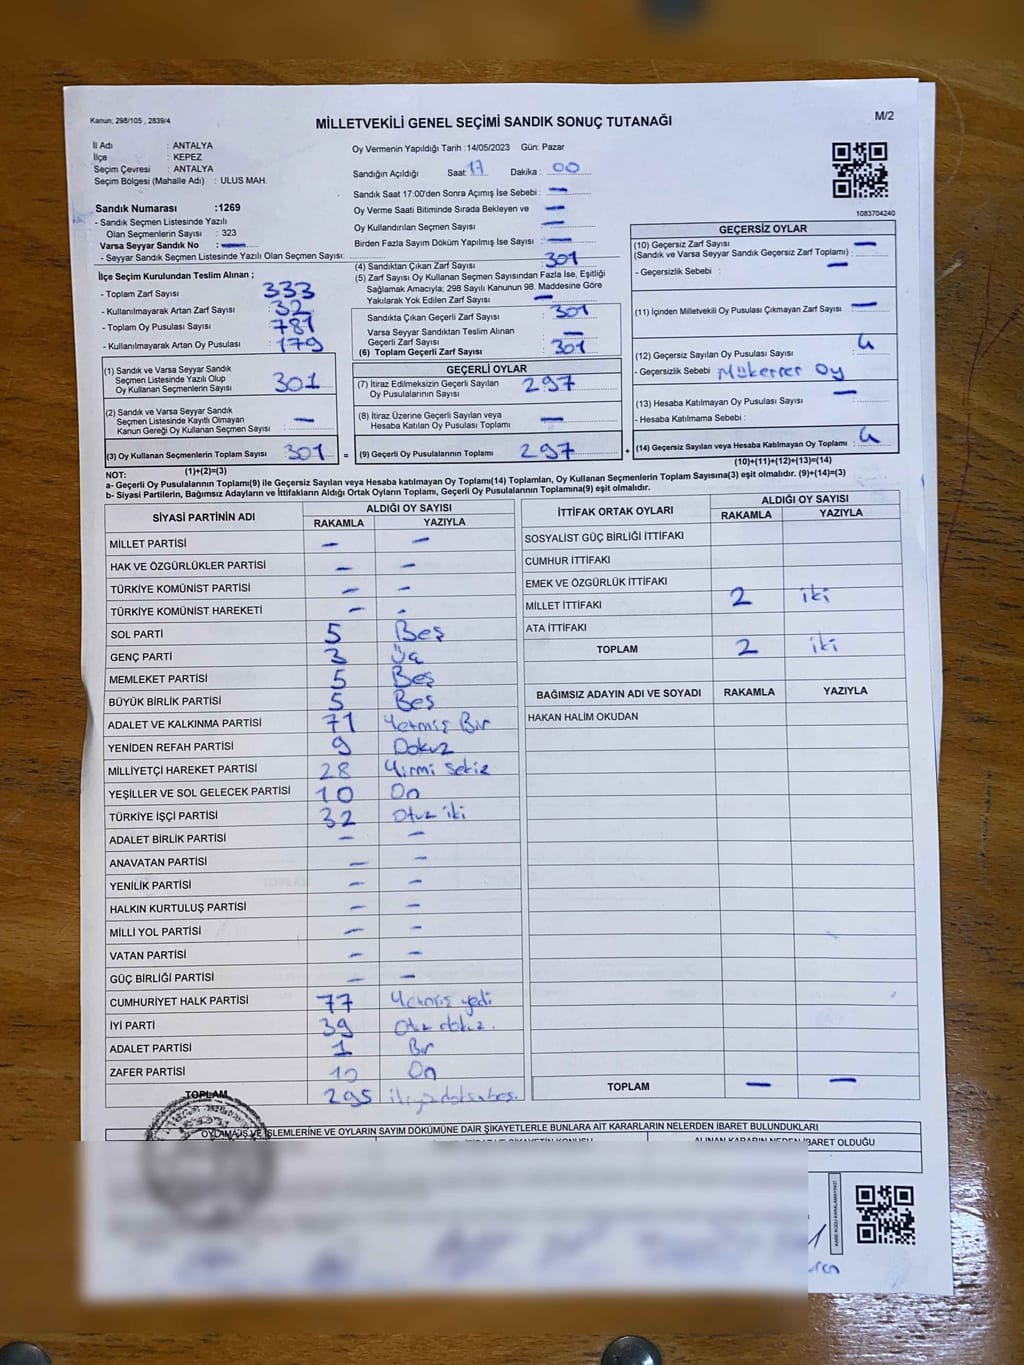 Kanun; 298/105 , 2839/4
MİLLETVEKİLİ GENEL SEÇİMİ SANDIK SONUÇ TUTANAĞI
M/2
İl Adı : ANTALYA
İlçe : KEPEZ
Seçim Çevresi : ANTALYA
Seçim Bölgesi (Mahalle Adı) : ULUS MAH.
Sandık Numarası :1269
- Sandık Seçmen Listesinde Yazılı
Olan Seçmenlerin Sayısı : 323
Varsa Seyyar Sandık No : —
- Seyyar Sandık Seçmen Listesinde Yazılı Olan Seçmen Sayısı:
Oy Vermenin Yapıldığı Tarih :14/05/2023 Gün: Pazar
Sandığın Açıldığı Saat: 17 Dakika : 00
Sandık Saat 17:00'den Sonra Açımış İse Sebebi : —
Oy Verme Saati Bitiminde Sırada Bekleyen ve —
Oy Kullandırılan Seçmen Sayısı : —
Birden Fazla Sayım Döküm Yapılmış İse Sayısı : —
1083704240
İlçe Seçim Kurulundan Teslim Alınan ;
- Toplam Zarf Sayısı : 333
- Kullanılmayarak Artan Zarf Sayısı : 32
- Toplam Oy Pusulası Sayısı : 781
- Kullanılmayarak Artan Oy Pusulası : 179
(1) Sandık ve Varsa Seyyar Sandık
Seçmen Listesinde Yazılı Olup
Oy Kullanan Seçmenlerin Sayısı : 301
(2) Sandık ve Varsa Seyyar Sandık
Seçmen Listesinde Kayıtlı Olmayan
Kanun Gereği Oy Kullanan Seçmen Sayısı : —
(3) Oy Kullanan Seçmenlerin Toplam Sayısı : 301 =
(1)+(2)=(3)
(4) Sandıktan Çıkan Zarf Sayısı : 301
(5) Zarf Sayısı Oy Kullanan Seçmen Sayısından Fazla İse, Eşitliği
Sağlamak Amacıyla; 298 Sayılı Kanunun 98. Maddesine Göre
Yakılarak Yok Edilen Zarf Sayısı : —
Sandıkta Çıkan Geçerli Zarf Sayısı : 301
Varsa Seyyar Sandıktan Teslim Alınan
Geçerli Zarf Sayısı : —
(6) Toplam Geçerli Zarf Sayısı : 301
GEÇERLİ OYLAR
(7) İtiraz Edilmeksizin Geçerli Sayılan
Oy Pusulalarının Sayısı : 297
(8) İtiraz Üzerine Geçerli Sayılan veya
Hesaba Katılan Oy Pusulası Toplamı : —
(9) Geçerli Oy Pusulalarının Toplamı : 297 +
GEÇERSİZ OYLAR
(10) Geçersiz Zarf Sayısı —
(Sandık ve Varsa Seyyar Sandık Geçersiz Zarf Toplamı) :
- Geçersizlik Sebebi : —
(11) İçinden Milletvekili Oy Pusulası Çıkmayan Zarf Sayısı : —
(12) Geçersiz Sayılan Oy Pusulası Sayısı : 4
- Geçersizlik Sebebi : Mükerrer Oy
(13) Hesaba Katılmayan Oy Pusulası Sayısı : —
- Hesaba Katılmama Sebebi :
(14) Geçersiz Sayılan veya Hesaba Katılmayan Oy Toplamı : 4
(10)+(11)+(12)+(13)=(14)
NOT:
a- Geçerli Oy Pusulalarının Toplamı(9) ile Geçersiz Sayılan veya Hesaba katılmayan Oy Toplamı(14) Toplamları, Oy Kullanan Seçmenlerin Toplam Sayısına(3) eşit olmalıdır. (9)+(14)=(3)
b- Siyasi Partilerin, Bağımsız Adayların ve İttifakların Aldığı Ortak Oyların Toplamı, Geçerli Oy Pusulalarının Toplamına(9) eşit olmalıdır.
SİYASİ PARTİNİN ADI ALDIĞI OY SAYISI
RAKAMLA YAZIYLA
MİLLET PARTİSİ — —
HAK VE ÖZGÜRLÜKLER PARTİSİ — —
TÜRKİYE KOMÜNİST PARTİSİ — —
TÜRKİYE KOMÜNİST HAREKETİ — -
SOL PARTİ 5 Beş
GENÇ PARTİ 3 Üç
MEMLEKET PARTİSİ 5 Beş
BÜYÜK BİRLİK PARTİSİ 5 Beş
ADALET VE KALKINMA PARTİSİ 71 Yetmiş Bir
YENİDEN REFAH PARTİSİ 9 Dokuz
MİLLİYETÇİ HAREKET PARTİSİ 28 Yirmi sekiz
YEŞİLLER VE SOL GELECEK PARTİSİ 10 On
TÜRKİYE İŞÇİ PARTİSİ 32 Otuz iki
ADALET BİRLİK PARTİSİ — —
ANAVATAN PARTİSİ — —
YENİLİK PARTİSİ — —
HALKIN KURTULUŞ PARTİSİ — —
MİLLİ YOL PARTİSİ — —
VATAN PARTİSİ — —
GÜÇ BİRLİĞİ PARTİSİ — —
CUMHURİYET HALK PARTİSİ 77 Yetmiş yedi
İYİ PARTİ 39 Otuz dokuz.
ADALET PARTİSİ 1 Bir
ZAFER PARTİSİ 10 On
TOPLAM 295
İTTİFAK ORTAK OYLARI ALDIĞI OY SAYISI
RAKAMLA YAZIYLA
SOSYALİST GÜÇ BİRLİĞİ İTTİFAKI
CUMHUR İTTİFAKI
EMEK VE ÖZGÜRLÜK İTTİFAKI
MİLLET İTTİFAKI 2 iki
ATA İTTİFAKI
TOPLAM 2 iki
BAĞIMSIZ ADAYIN ADI VE SOYADI RAKAMLA YAZIYLA
HAKAN HALİM OKUDAN
TOPLAM — —
İŞLEMLERİNE VE OYLARIN SAYIM DÖKÜMÜNE DAİR ŞİKAYETLERLE BUNLARA AİT KARARLARIN NELERDEN İBARET BULUNDUKLARI
ALINAN KARARIN NEDEN İBARET OLDUĞU